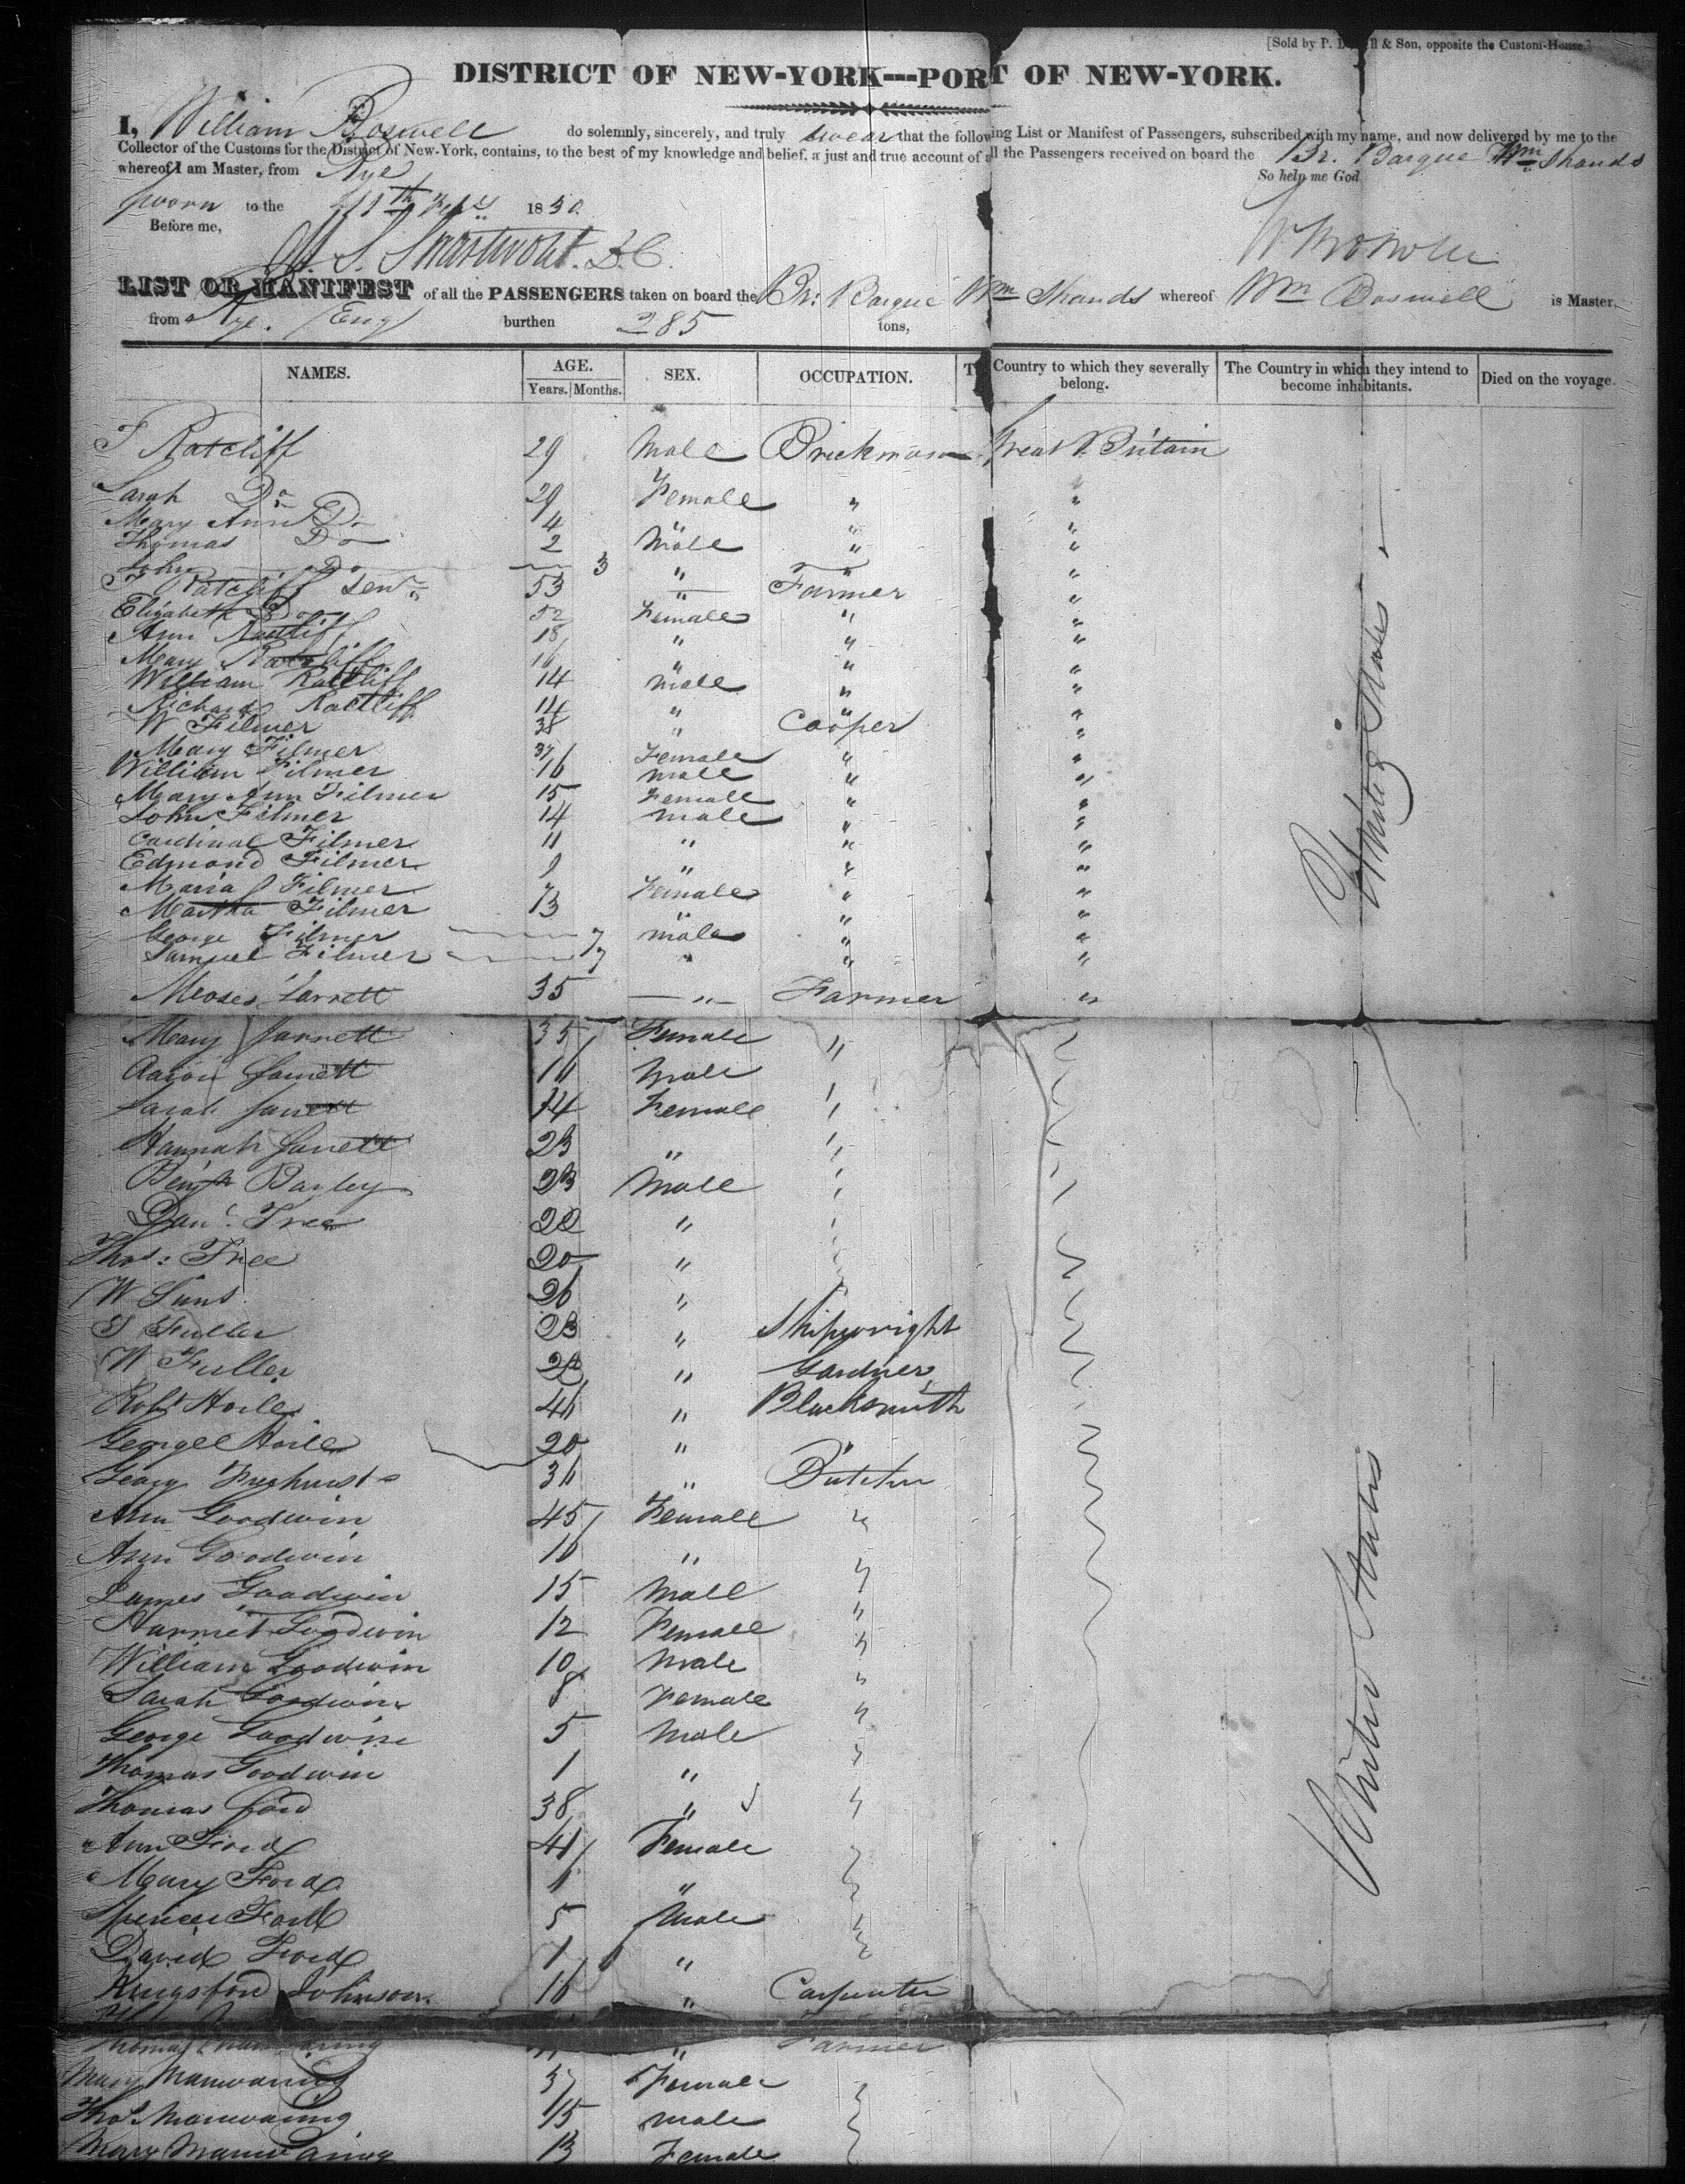 [Sold by P. & Son, opposite the Custom-House.]
DISTRICT OF NEW-YORK---PORT OF NEW-YORK.
I, William Boswell do solemnly, sincerely, and truly swear that the following List or Manifest of Passengers, subscribed with my name, and now delivered by me to the
Collector of the Customs for the District of New-York, contains, to the best of my knowledge and belief, a just and true account of all the Passengers received on board the Br. Barque Wm Shands
whereof I am Master, from Rye So help me God
Sworn to the 18
Before me,
LIST OR MANIFEST of all the PASSENGERS taken on board the Br: Barque Wm Shands whereof Wm Boswell is Master,
from Rye. (Eng) burthen 285 tons,
NAMES. AGE. SEX. OCCUPATION. Country to which they severally belong. The Country in which they intend to become inhabitants. Died on the voyage.
Years. Months.
T Ratcliff 29 Male Great Britain
Sarah Do 29 Female " "
Mary Ann Do 4 " " "
Thomas Do 2 Male " "
John Do 3 " " "
T Ratcliff Senr 53 " Farmer "
Elizabeth Do 52 Female " "
Ann Ratcliff 18 " " "
Mary Ratcliff 16 " " "
William Ratcliff 14 Male " "
Richard Ratcliff 14 " " "
W Filmer 38 " Cooper "
Mary Filmer 37 Female " "
William Filmer 16 Male " "
Mary Ann Filmer 15 Female " "
John Filmer 14 Male " "
Cardinal Filmer 11 " " "
Edmond Filmer 9 " " "
Maria Filmer 7 Female " "
Martha Filmer 3 " " "
George Filmer 7 Male " "
Samuel Filmer 7 " " "
Moses Jarrett 35 " Farmer "
Mary Jarrett 35 Female "
Aaron Jarrett 16 Male
Sarah Jarrett 14 Female "
Hannah Jarrett "
Benjn Bayley Male
Danl. Tree 22 "
Thos: Tree 20 "
W 26 "
T Fuller 23 " Shipwright
W Fuller " Gardner
Robt Hoile " Blacksmith
George Hoile 20 " "
36 " Butcher
Ann Goodwin 45 Female "
Ann Goodwin 16 " "
James Goodwin 15 Male "
Harriet Goodwin 12 Female "
William Goodwin 10 Male "
Sarah Goodwin 8 Female "
George Goodwin 5 Male "
Thomas Goodwin 1 " "
Thomas Ford 38 " "
Ann Ford 41 Female
Mary Ford "
Spencer Ford 5 Male
David Ford 1 "
Kingsford Johnson 16 " Carpenter
Thomas Manwaring " Farmer
Mary Manwaring 37 Female
Thos Manwaring 15 male
Mary Manwaring 13 Female
United States
United States